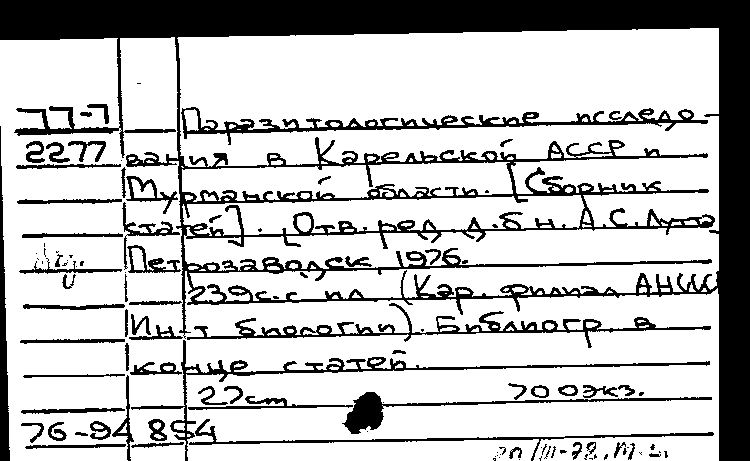 77-7 Паразитологические исследо-
2277 вания в Карельской АССР и
Мурманской области. [Сборник
статей]. [Отв. ред. д.б.н. А.С. Лутта
Петрозаводск, 1976.
239с. с ил. (Кар. филиал АН СССР
Ин-т биологии). Библиогр. в
конце статей.
22 cm. 700 экз.
76-94854
20/III-78.